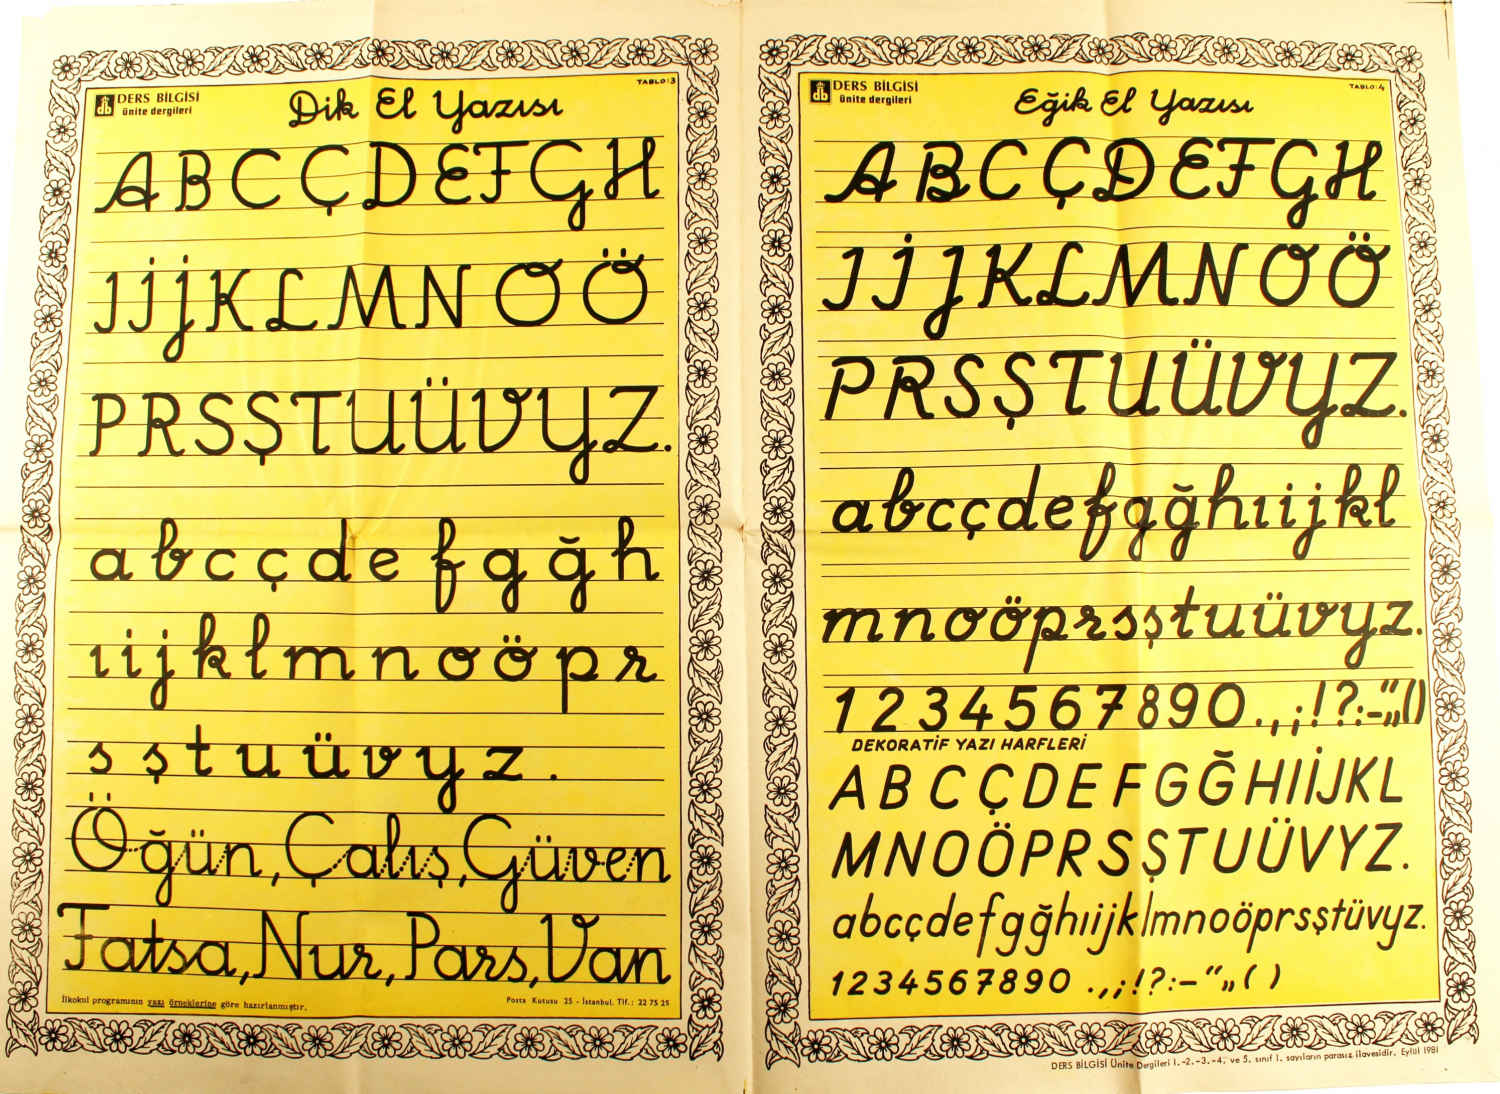 DERS BİLGİSİ
ünite dergileri
Dik El Yazısı
TABLO:3
A B C Ç D E F G H
I İ J K L M N O Ö
P R S Ş T U Ü V Y Z.
a b c ç d e f g ğ h
ı i j k l m n o ö p r
s ş t u ü v y z .
Öğün, Çalış, Güven
Fatsa, Nur, Pars, Van
İlkokul programının yazı örneklerine göre hazırlanmıştır.
Posta Kutusu 25 - İstanbul. Tlf.: 22 75 25
DERS BİLGİSİ
ünite dergileri
Eğik El Yazısı
TABLO:4
A B C Ç D E F G H
I İ J K L M N O Ö
P R S Ş T U Ü V Y Z.
a b c ç d e f g ğ h ı i j k l
m n o ö p r s ş t u ü v y z.
1 2 3 4 5 6 7 8 9 0 . , ; ! ? : - “ „ ( )
DEKORATİF YAZI HARFLERİ
A B C Ç D E F G Ğ H I İ J K L
M N O Ö P R S Ş T U Ü V Y Z.
a b c ç d e f g ğ h ı i j k l m n o ö p r s ş t ü v y z.
1 2 3 4 5 6 7 8 9 0 . , ; ! ? : – “ „ ( )
DERS BİLGİSİ Ünite Dergileri 1.-2.-3.-4. ve 5. sınıf 1. sayıların parasız ilavesidir. Eylül 1981